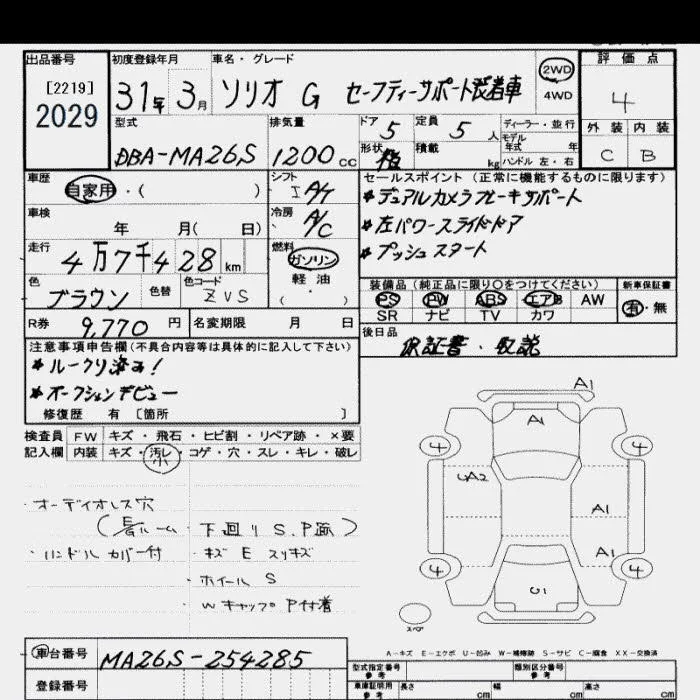 出品番号 初度登録年月 車名・グレード 評価点
[2219] 2029 31年 3月 ソリオ G セーフティーサポート装着車 2WD 4WD 4
型式 排気量 ドア 定員 ディーラー・並行 外装 内装
DBA-MA26S 1200cc 5 5人 モデル年式 年 C B
形状 箱 積載 kg ハンドル 左・右
車歴 シフト セールスポイント (正常に機能するものに限ります)
自家用・( ) I A/T *デュアルカメラブレーキサポート
車検 冷房 *左パワースライドドア
年 月( 日) A/C *プッシュスタート
走行 燃料
4万7千428km ガソリン
色 色替 色コード 軽油 装備品(純正品に限り○をつけてください) 新車保証書
ブラウン ZVS ・( ) PS PW ABS エアB AW 有・無
SR ナビ TV カワ
R券 9,770円 名変期限 月 日 後日品
注意事項申告欄(不具合内容等は具体的に記入して下さい) 保証書・取説
*ルークリ済み!
*オークションデビュー
修復歴 有 [箇所 ]
検査員 FW キズ・飛石・ヒビ割・リペア跡・×要
記入欄 内装 キズ・汚レ・コゲ・穴・スレ・キレ・破レ
小
・オーディオレス穴
下回り S.P面)
・ハンドルカバー付 ・キズ E スリキズ
・ホイール S
・Wキャップ P付着
A1
A1
4 4
A2
A1
A1
4 4
U1
スペア
A-キズ E-エクボ U-凹み W-補修跡 S-サビ C-腐食 XX-交換済
車台番号 MA26S-254285 型式指定番号 参考 類別区分番号 参考
登録番号 車庫証明用 参考 長さ cm 幅 cm 高さ cm